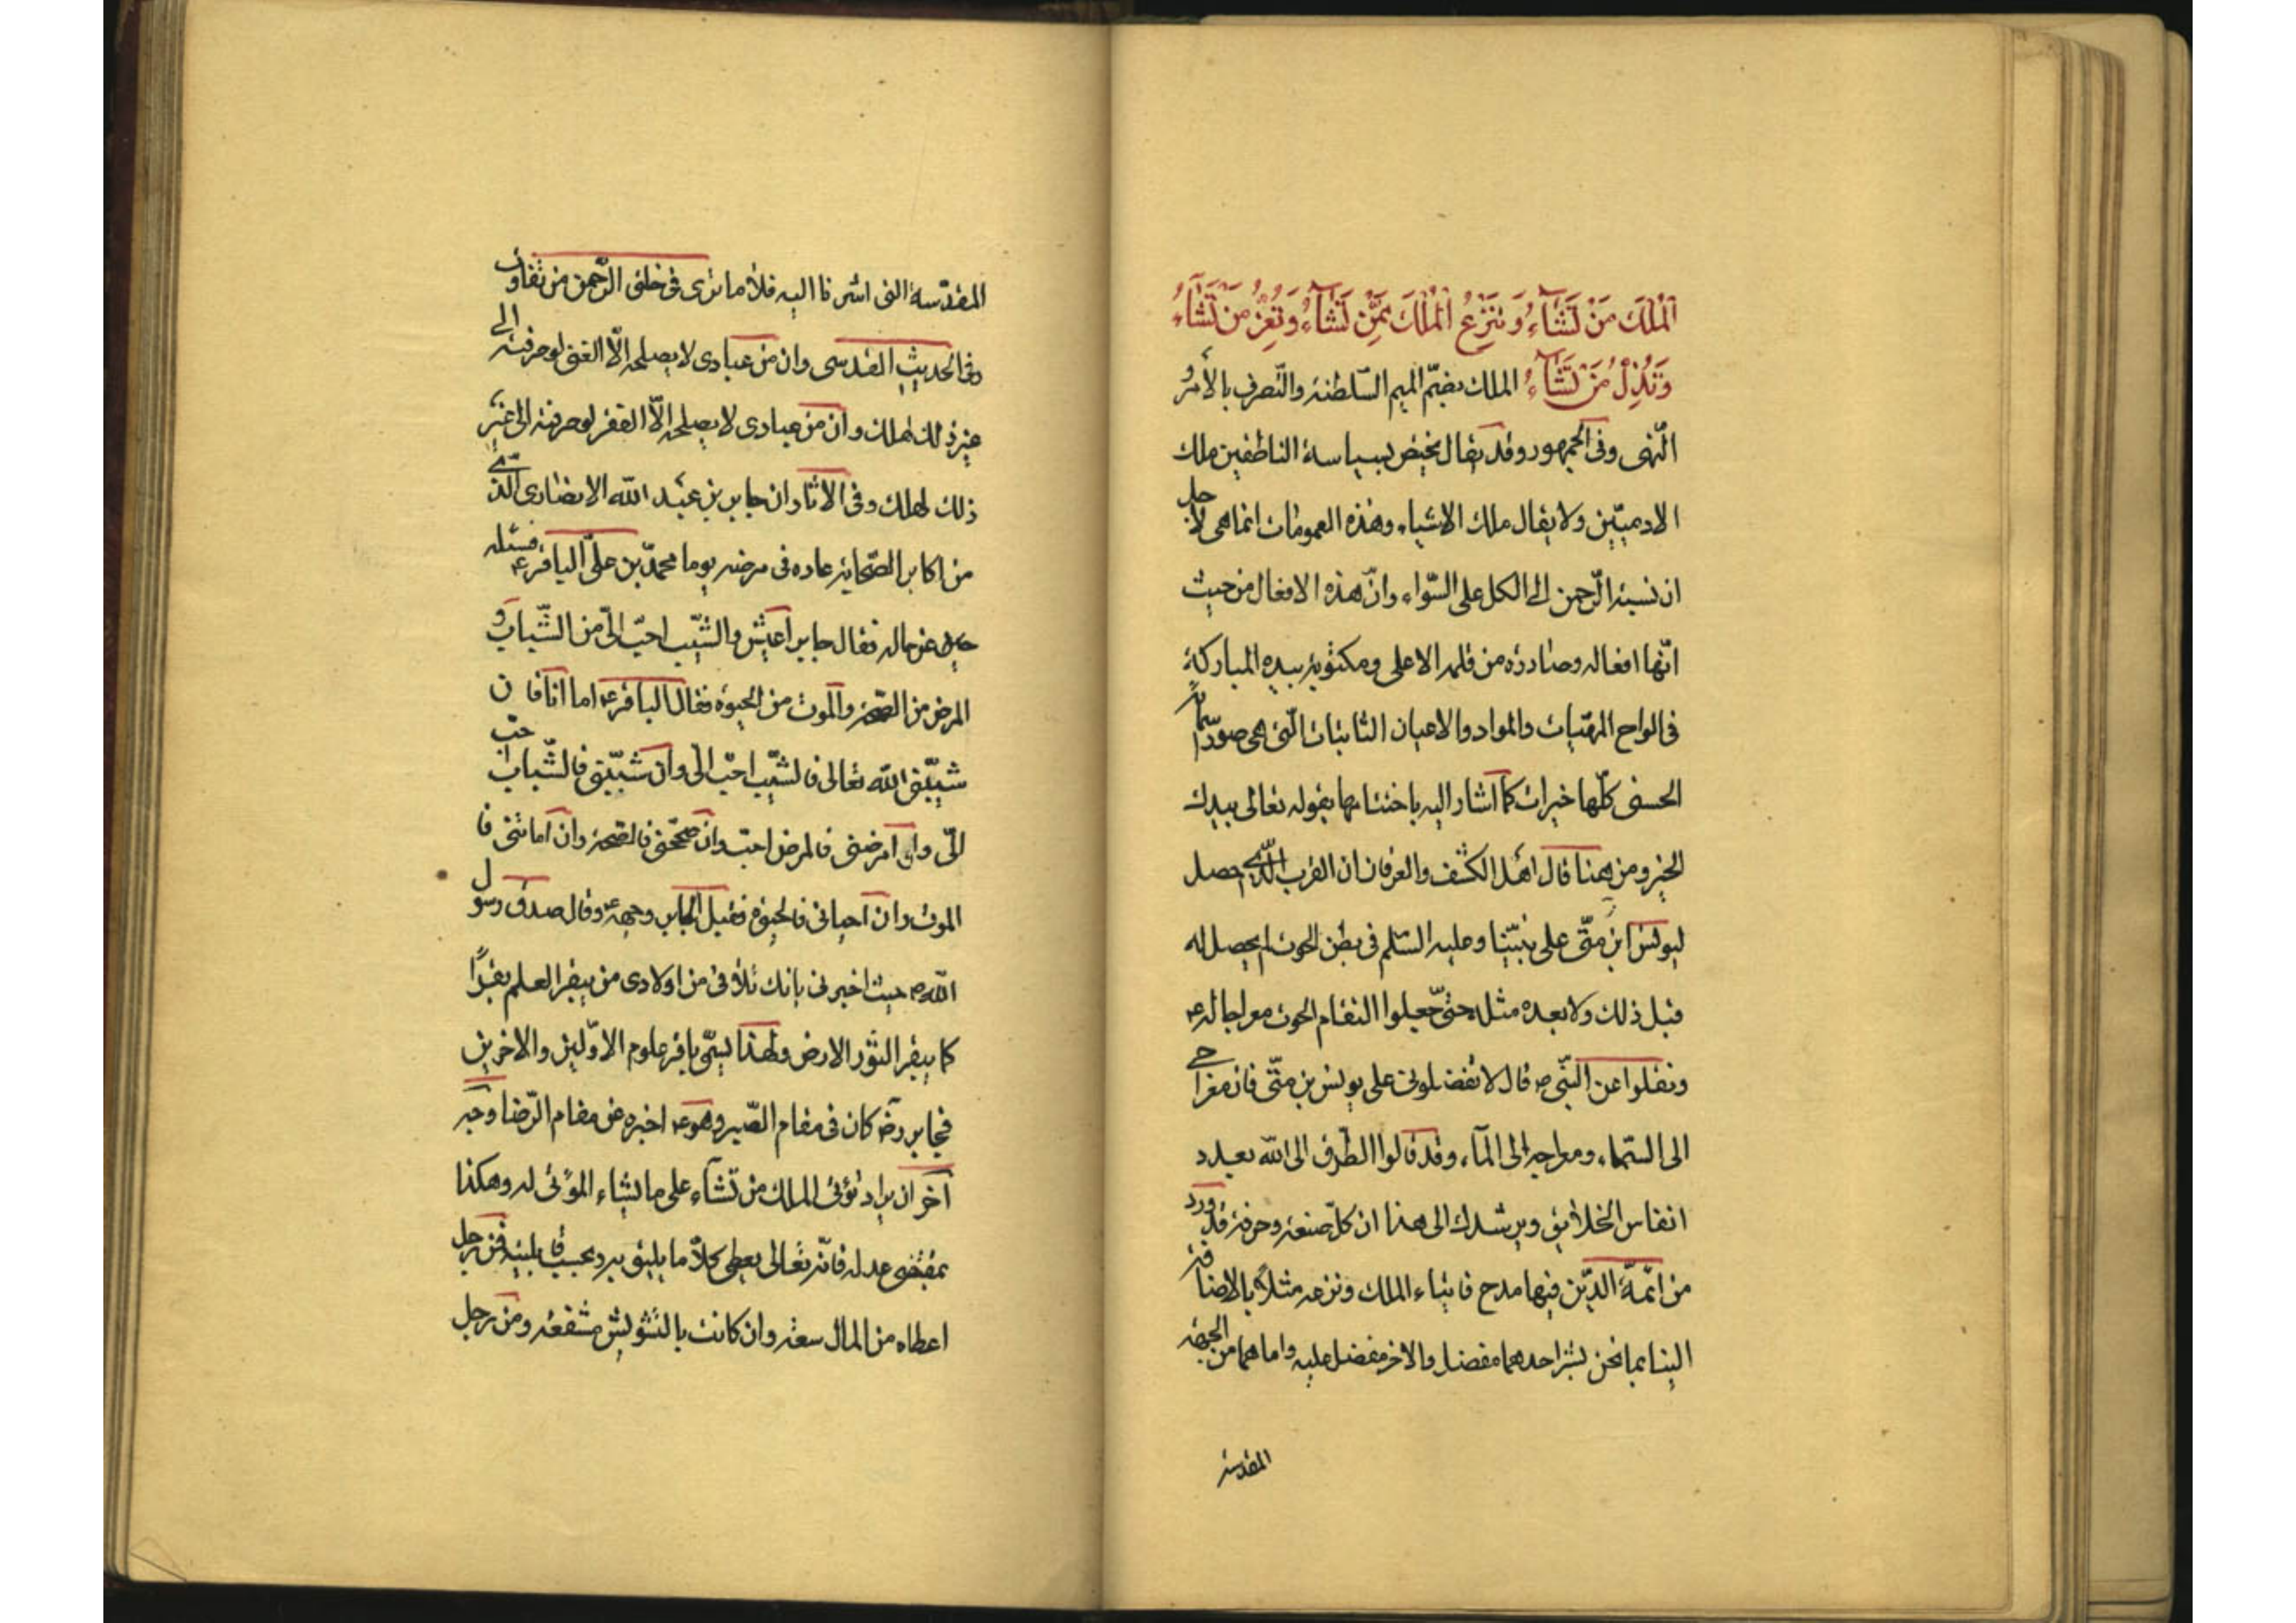 الْمُلْكَ مَنْ تَشَآءُ وَتَنْزِعُ الْمُلْكَ مِمَّنْ تَشَآءُ وَتُعِزُّ مَنْ تَشَآءُ
وَتُذِلُّ مَنْ تَشَآءُ الملك بضمّ الميم السّلطنة والتّصرف بالأمر و
النّهى وفى الجمهور وقد يقال يختصّ بسياسة الناطقين ملك
الادميّين ولا يقال ملك الاشياء وهذه العمومات انما هى لاجل
ان نسبة الرّحمن الى الكل على السّواء وانّ هذه الافعال من حيث
انّها افعاله وصادرة من قلمه الاعلى ومكتوبة بيده المباركة
فى الواح المهيّات والمواد والاعيان الثابتات الّتى هى صور اسمائه
الحسنى كلّها خيرات كما اشار اليه باختتامها بقوله تعالى بيدك
الخير ومن ههنا قال اهل الكشف والعرفان ان القرب الّذى حصل
ليونس ابن متّى على نبيّنا وعليه السّلم فى بطن الحوت لم يحصل له
قبل ذلك ولا بعده مثله حتّى جعلوا التقام الحوت معراجا له ع
ونقلوا عن النّبى ص قال لا تفضلونى على يونس بن متّى فان معراجى
الى السّماء ومعراجه الى المآء وقد قالوا الطّرق الى الله بعدد
انفاس الخلايق ويرشدك الى هذا ان كلّ صنعة وحرفة قد ورد
من ائمّة الدّين فيها مدح فايتاء الملك ونزعه مثلاً بالاضافة
الينا بما نحن بشر احدهما مفضل والاخر مفضل عليه واما هما من الجهة
المقدسة
المقدّسة التى اشرنا اليه فلا ما ترى فى خلق الرّحمن من تفاوت
وفى الحديث القدسى وان من عبادى لا يصلحه الّا الغنى لو صرفته الى
غير ذلك لهلك وان من عبادى لا يصلحه الّا الفقر لو صرفته الى غير
ذلك لهلك وفى الاثار ان جابر بن عبد الله الانصارى الّذى
من اكابر الصّحابة عاده فى مرضه يوما محمّد بن علىّ الباقر ع فسئله
عن حاله فقال جابر والشّيب احبّ الىّ من الشّباب و
المرض من الصّحة والموت من الحيوة فقال الباقر ع اما انا فان
شيّبنى الله تعالى فالشّيب احبّ الىّ وان شبّبنى فالشّباب احبّ
الىّ وان امرضنى فالمرض احبّ وان صحّحنى فالصّحة وان اماتنى فا
الموت وان احيانى فالحيوة فقبل الجابر وجهه ع وقال صدق رسول
الله ص حيث اخبرنى بانك تلاقى من اولادى من يبقر العلم بقراً
كما يبقر الثّور الارض ولهذا يسمّى باقر علوم الاوّلين والاخرين
فجابر رض كان فى مقام الصّبر وهو ع اخبره عن مقام الرّضا وجه
آخر ان يراد تؤتى الملك من تشآء على ما يشاء المؤتى له وهكذا
بمقتضى عدله فانّه تعالى يعطى كلاً ما يليق به وبحسب قابليته فمن رجل
اعطاه من المال سعته وان كانت بالتشويش مشفعة ومن رجل